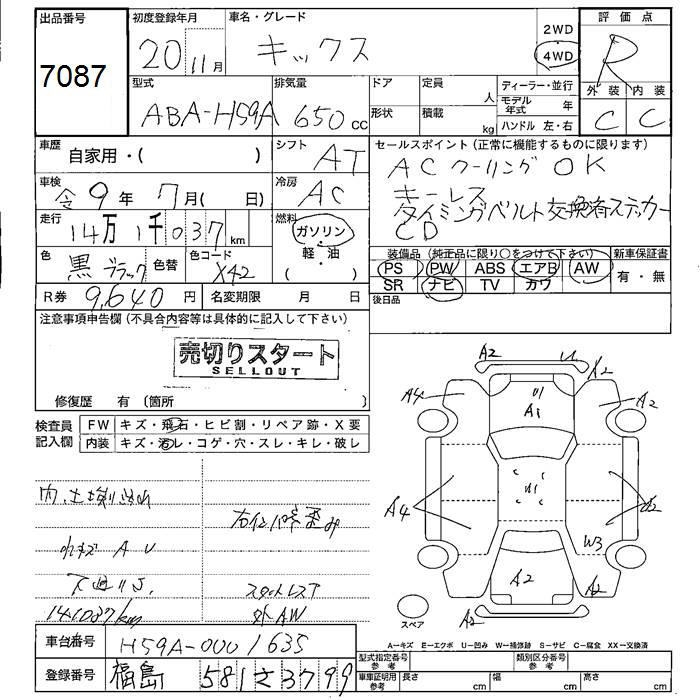 出品番号
7087
初度登録年月
20 11月
車名・グレード
キックス
2WD
4WD
評価点
R
外装 内装
C C
型式
ABA-H59A
排気量
650cc
ドア
形状
定員 人
積載 kg
ディーラー・並行
モデル年式 年
ハンドル 左・右
車歴
自家用・( )
シフト
AT
車検
令9年7月( 日)
冷房
AC
走行
14万1千037km
燃料
ガソリン
軽・油
( )
色
黒 ブラック
色替
色コード
X42
R券 9,640円
名変期限 月 日
セールスポイント(正常に機能するものに限ります)
ACクーリングOK
キーレス
タイミングベルト交換済ステッカー
CD
装備品(純正品に限り○をつけて下さい)
新車保証書
PS PW ABS エアB AW
SR ナビ TV カワ
有・無
後日品
注意事項申告欄(不具合内容等は具体的に記入して下さい)
売切りスタート
SELLOUT
修復歴 有(箇所 )
検査員記入欄
FW キズ・飛石・ヒビ割・リペア跡・X要
内装 キズ・汚レ・コゲ・穴・スレ・キレ・破レ
A U
スタットレスT
141,037km
外AW
A2 U A2
A4 A1 A2
A4 A2
W3
A2 A2
A2
スペア
A-キズ E-エクボ U-凹み W-補修跡 S-サビ C-腐食 XX-交換済
車台番号
H59A-0001635
登録番号
福島 581 さ 3799
型式指定番号参考
類別区分番号参考
車庫証明用参考
長さ cm
幅 cm
高さ cm